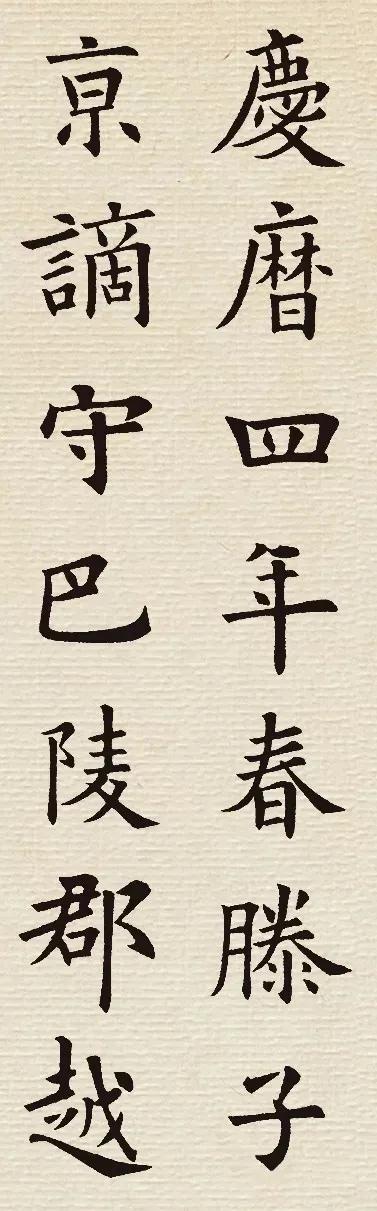 慶曆四年春滕子
亰謫守巴陵郡越